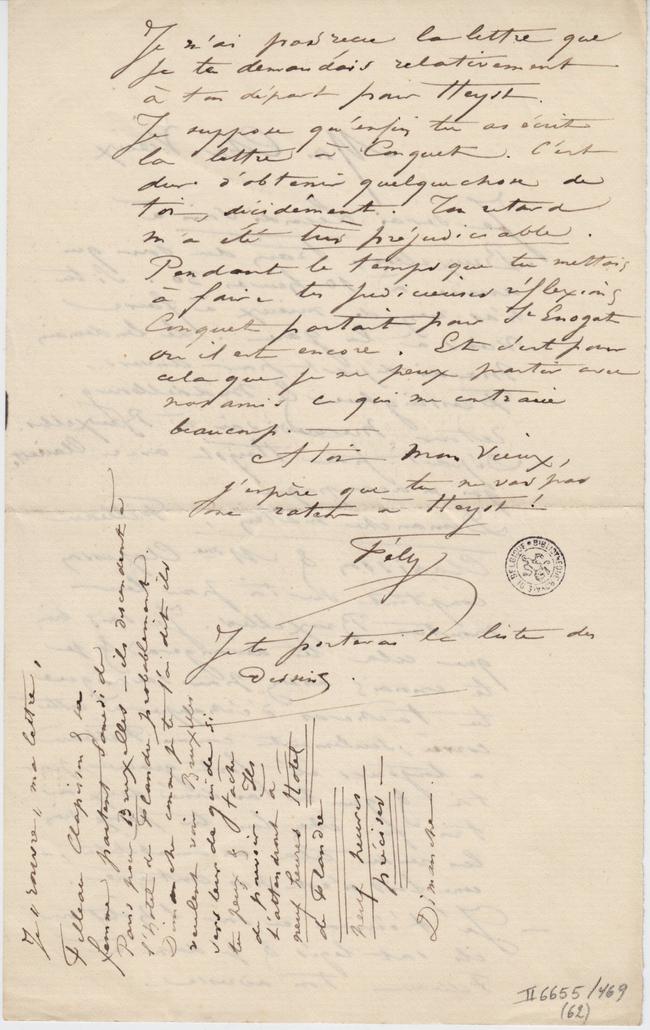 Je n'ai pas reçu la lettre que
je te demandais relativement
à ton départ pour Heyst.
Je suppose qu'enfin tu as écrit
la lettre à Conquet. C'est
dur d'obtenir quelque chose de
toi, décidément. Ton retard
m'a été très préjudiciable.
Pendant le temps que tu mettais
à faire tes judicieuses réflexions
Conquet partait pour St Enogat
où il est encore. Et c'est pour
cela que je ne peux partir avec
nos amis ce qui me contrarie
beaucoup. —
A toi Mon Vieux,
j'espère que tu ne vas pas
me rater à Heyst !
Fély
Je te porterai la liste des
Dessins.
Je r'ouvre, ma lettre,
Filleau Clapisson & sa
femme partent Samedi de
Paris pour Bruxelles – ils descendront à
l'Hotel de Flandre probablement.
Dimanche comme je te l'ai dit ils
veulent voir Bruxelles
sers leur de guide si
tu peux & tache
de pouvoir. Ils
t'attendront à
neuf heures Hotel
de Flandre
neuf heures
précises –
Dimanche.
BIBLIOTHEQUE ROYALE DE BELGIQUE
II 6655/469
(62)